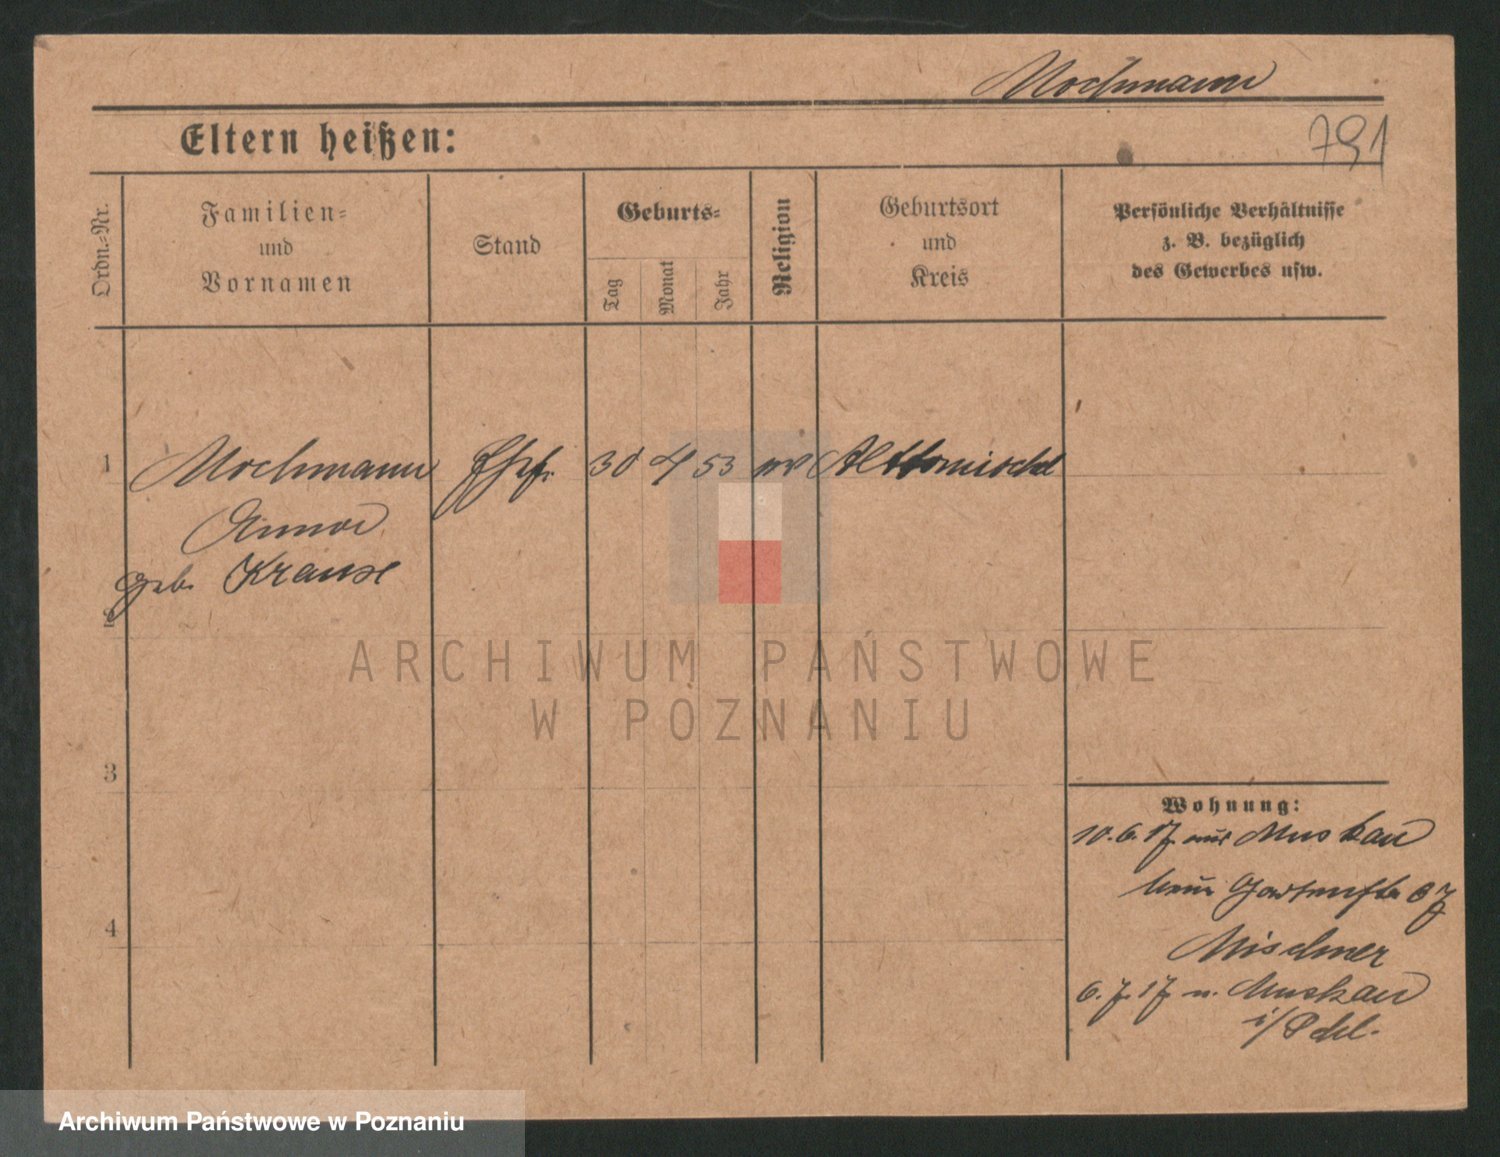 Mochmann
Eltern heißen:
791
Ordn.=Nr.
Familien=
und
Vornamen
Stand
Geburts=
Tag
Monat
Jahr
Religion
Geburtsort
und
Kreis
Persönliche Verhältnisse
z. B. bezüglich
des Gewerbes usw.
1 Mochmann 30 4 53 ev Alttomischel
Anna
geb. Krause
2
3
4
ARCHIWUM PAŃSTWOWE
W POZNANIU
Wohnung:
10.6.17. aus Muskau
Gartenstr.
6.7.17 n. Muskau
i/Schl.
Archiwum Państwowe w Poznaniu